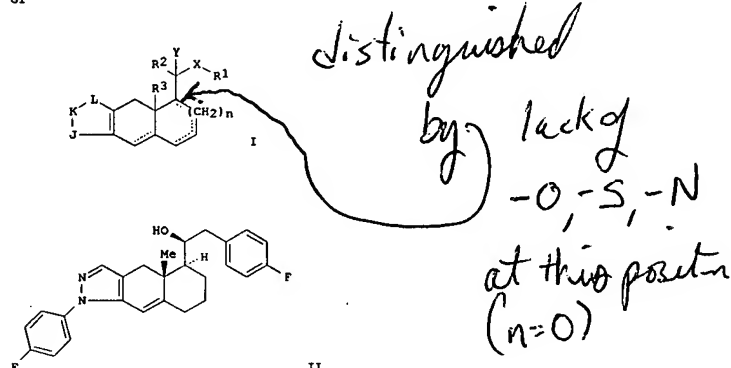 GI
Y
R2 X R1
R3
L
K (CH2)n
J
I
distinguished
by lack of
-O, -S, -N
at this positn
(n=0)
HO
Me H
N F
N
F
II